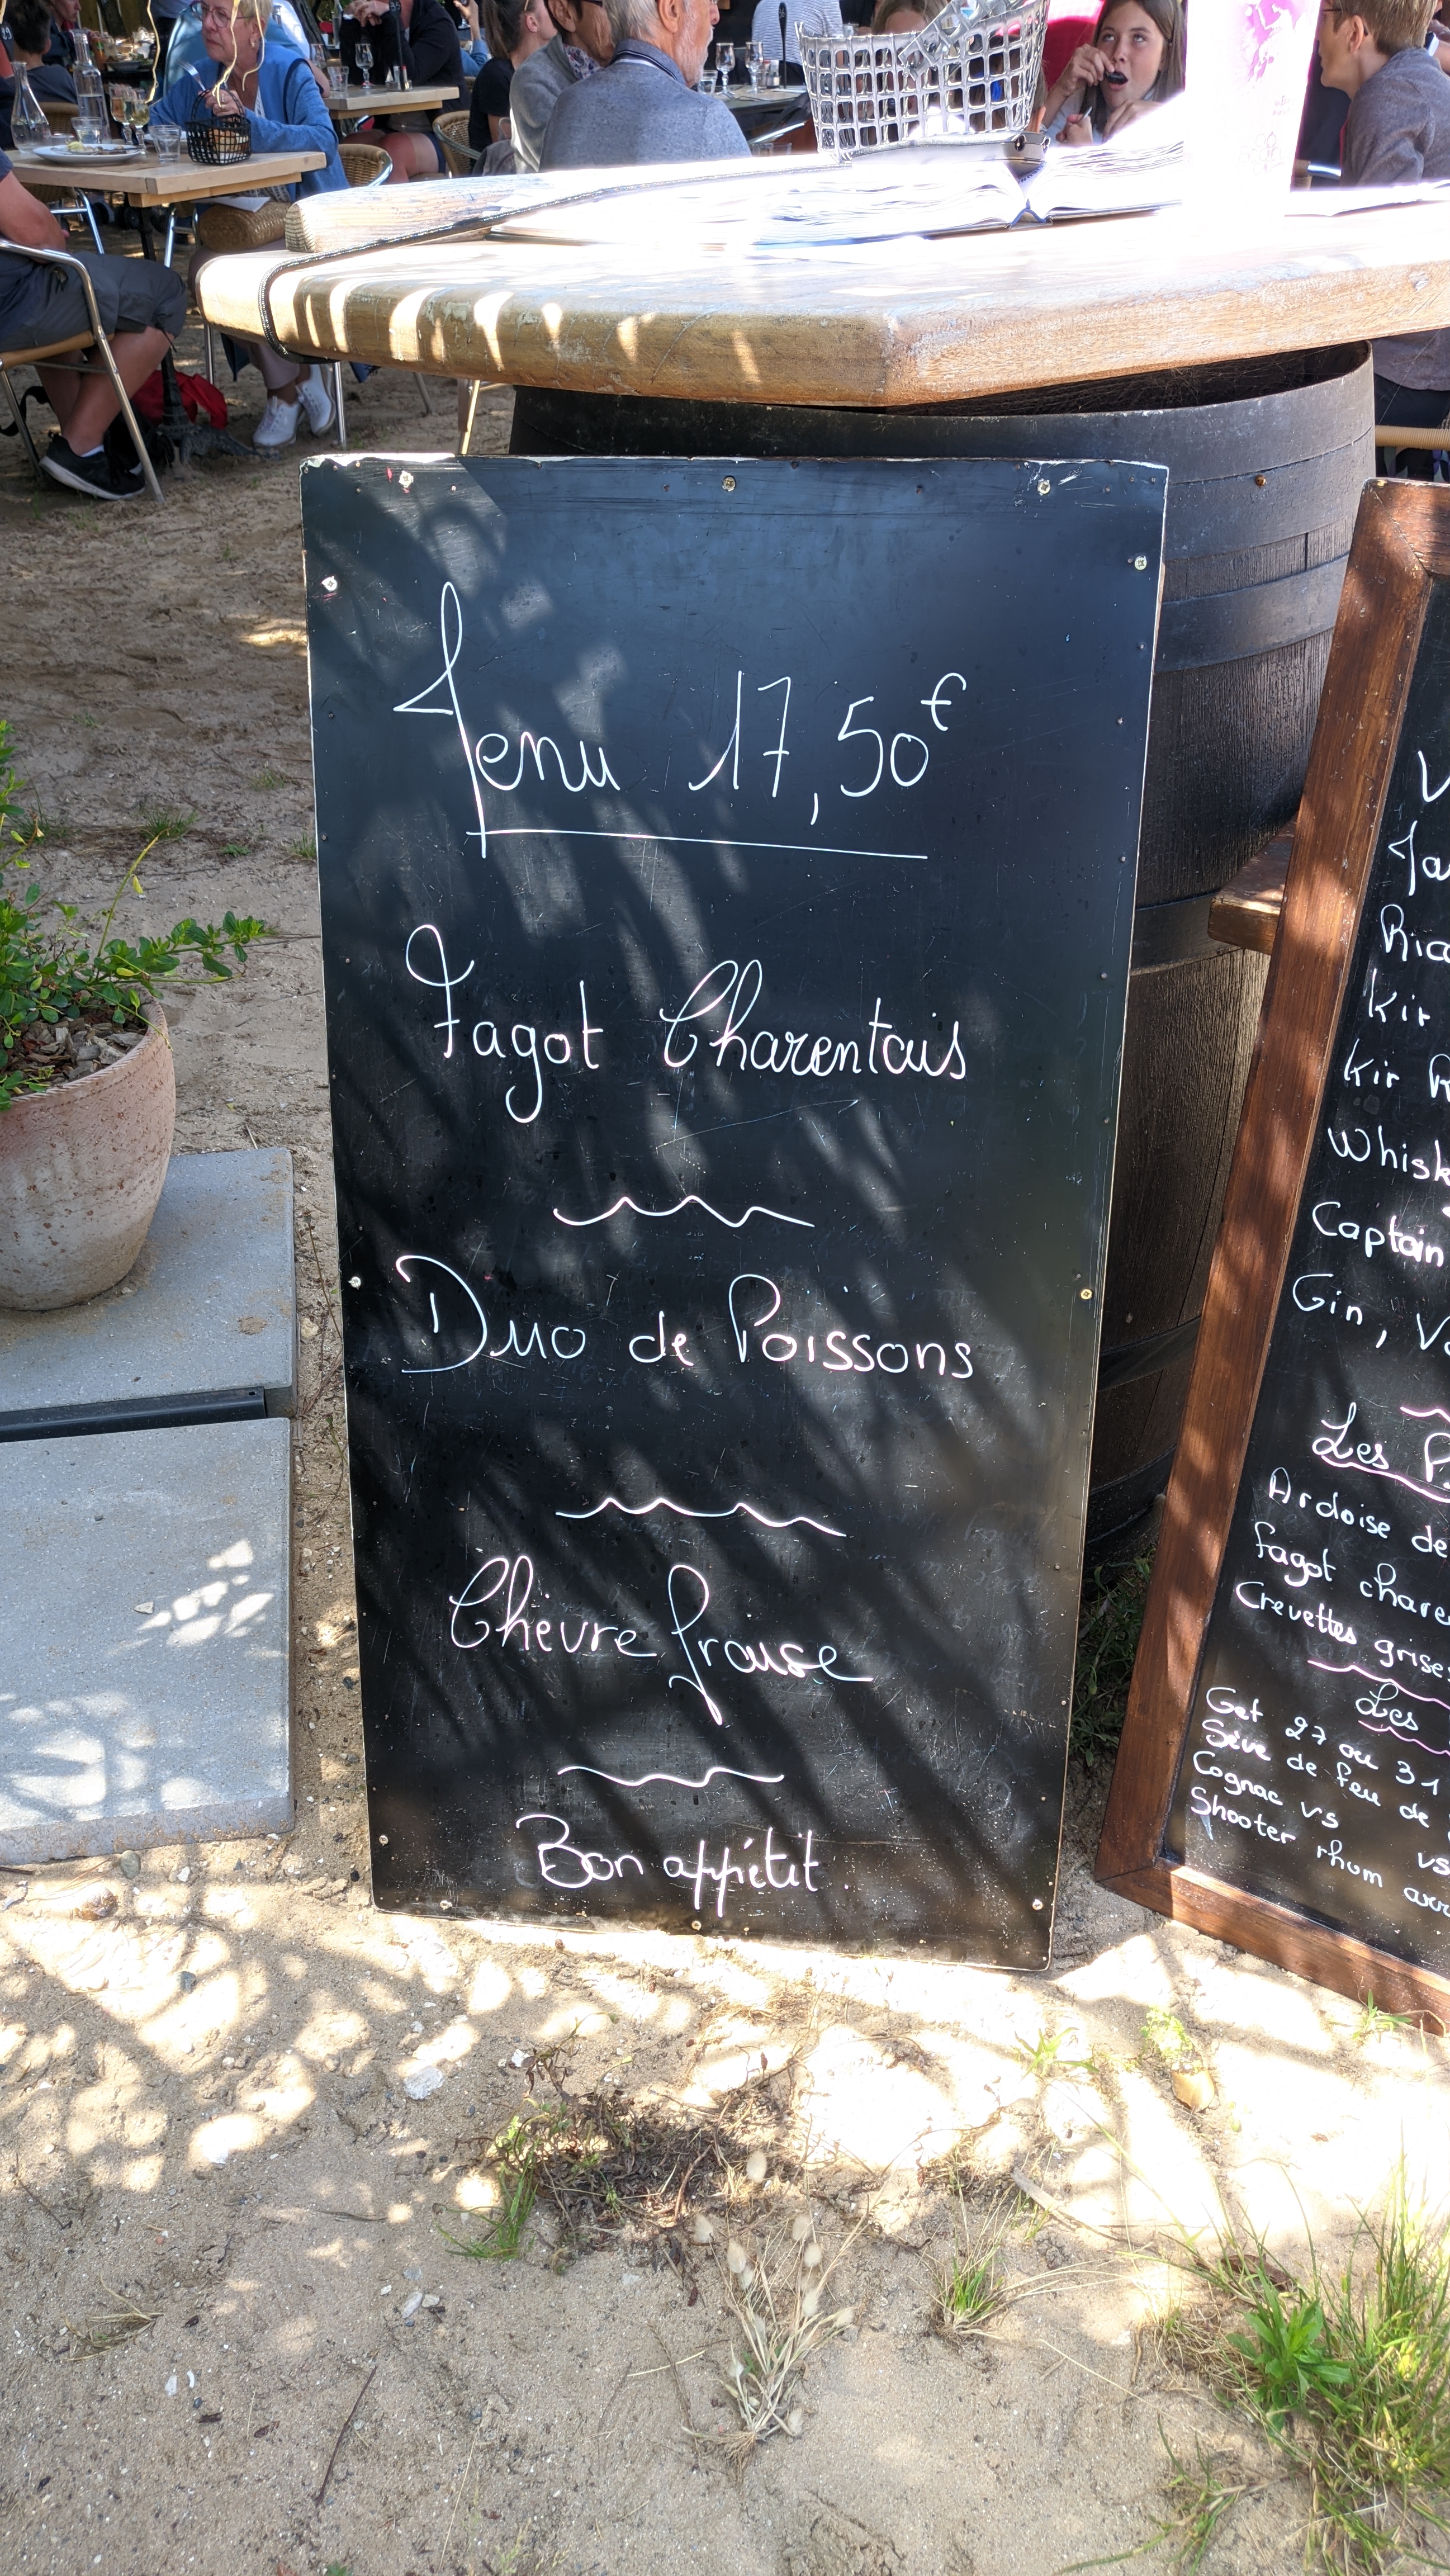 Menu 17,50€
Fagot Charentais
Duo de Poissons
Chèvre frouse
Bon appétit
Ric
Kir
Kir R
Whisk
Captain
Gin, V
Les P
Ardoise de
fagot chare
Crevettes grises
Les
Get 27 ou 31
Sève de feu de
Cognac VS
VS
Shooter rhum arr